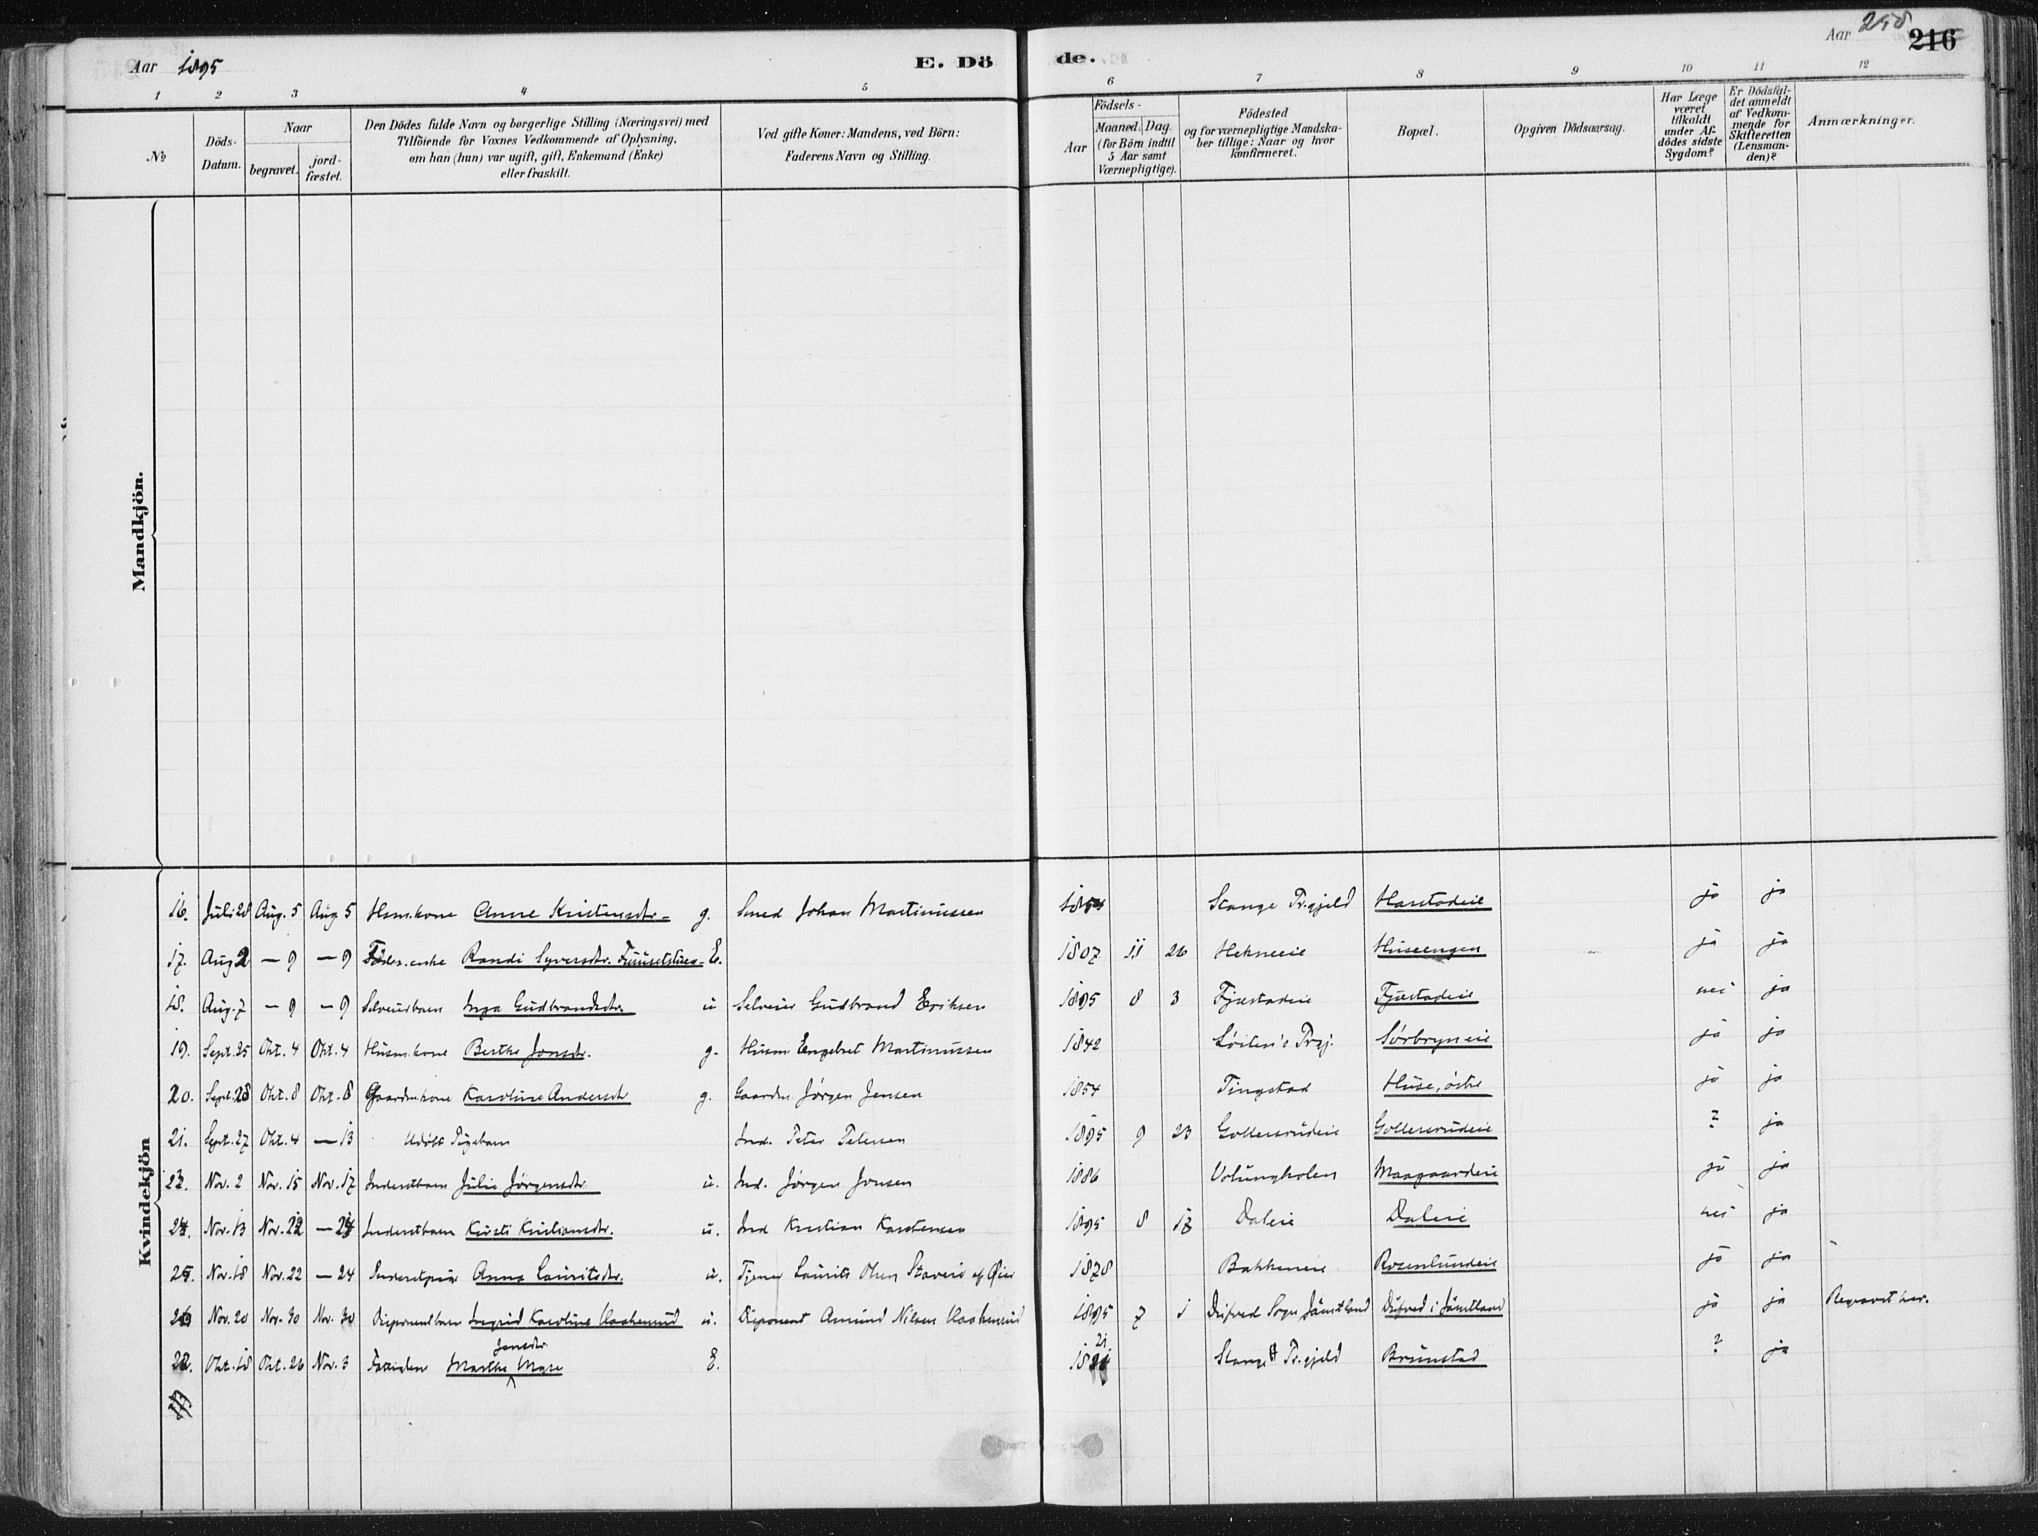 Aar 1895
E. Dö
de.
Aar 258
216
1 2 3 4 5 6 7 8 9 10 11 12
No
Döds-Datum.
Naar
begravet.
jord-fæstet.
Den Dödes fulde Navn og borgerlige Stilling (Næringsvei) med
Tilföiende for Voxnes Vedkommende af Oplysning,
om han (hun) var ugift, gift, Enkemand (Enke)
eller fraskilt.
Ved gifte Koner: Mandens, ved Börn:
Faderens Navn og Stilling.
Födsels-
Aar
Maaned. Dag.
(for Börn indtil
5 Aar samt
Værnepligtige).
Födested
og for værnepligtige Mandska-
ber tillige: Naar og hvor
konfirmeret.
Bopæl.
Opgiven Dödsaarsag.
Har Læge
været
tilkaldt
under Af-
dödes sidste
Sygdom?
Er Dödsfal-
det anmeldt
af Vedkom-
mende for
Skifteretten
(Lensman-
den)?
Anmærkninger.
Mandkjön.
Kvindekjön
16. Juli 28 Aug. 5 Aug 5 Husm.kone Anne Kristensdtr. g. Smed Johan Martinussen 1854 Stange Pr.gjeld Harstadeie ja ja
17. Aug 2 — 9 — 9 Randi Syversdtr. E. 1807 11 26 Hekneeie Huseengen ja ja
18. Aug. 7 — 9 — 9 Selveierbarn Inga Gudbrandsdtr. u Selveier Gudbrand Eriksen 1895 8 3 Fjæstadeie Fjæstadeie nei ja
19. Sept. 25 Okt. 4 Okt. 4 Husm.kone Berthe Jonsdtr. g. Husm Engebret Martinussen 1842 Løiten's Prgj. Sørbryneie ja ja
20. Sept. 28 Okt. 8 Okt. 8 Gaardm.kone Karoline Andersdtr g. Gaardm. Jørgen Jensen 1854 Tingstad Huse, østre ja ja
21. Sept. 27 Okt. 4 — 13 Udøbt Pigebarn Ind. Peter Petersen 1895 9 23 Gollersrudeie Gollersrudeie ? ja
23. Nov. 2 Nov. 15 Nov. 17 Inderstbarn Julie Jørgensdtr u. Ind. Jørgen Jonsen 1886 Volungholen Maagaardeie ja ja
24. Nov. 13 Nov. 22 — 24 Inderstbarn Kirsti Kristiansdtr. u. Ind Kristian Karstensen 1895 8 17 Daleie Daleie nei ja
25. Nov. 18 Nov. 22 — 24 Inderstpige Anna Lauritsdtr. u. Tjener Laurits Olsen 1878 Bakkeneie Rosenlundeie ja ja
26 Nov. 20 Nov. 30 Nov. 30 Disponentbarn Ingrid Karoline Haakenrud u. Disponent Amund Nilsen Haakenrud 1895 7 1 Sogn Jämtland i Jämtland ja ja Begravet her.
22. Okt. 18 Okt. 26 Nov. 3 Fattiglem Marthe Jensdtr. Myre E. 1821 Stange Pr.gjeld Brunstad ? ja